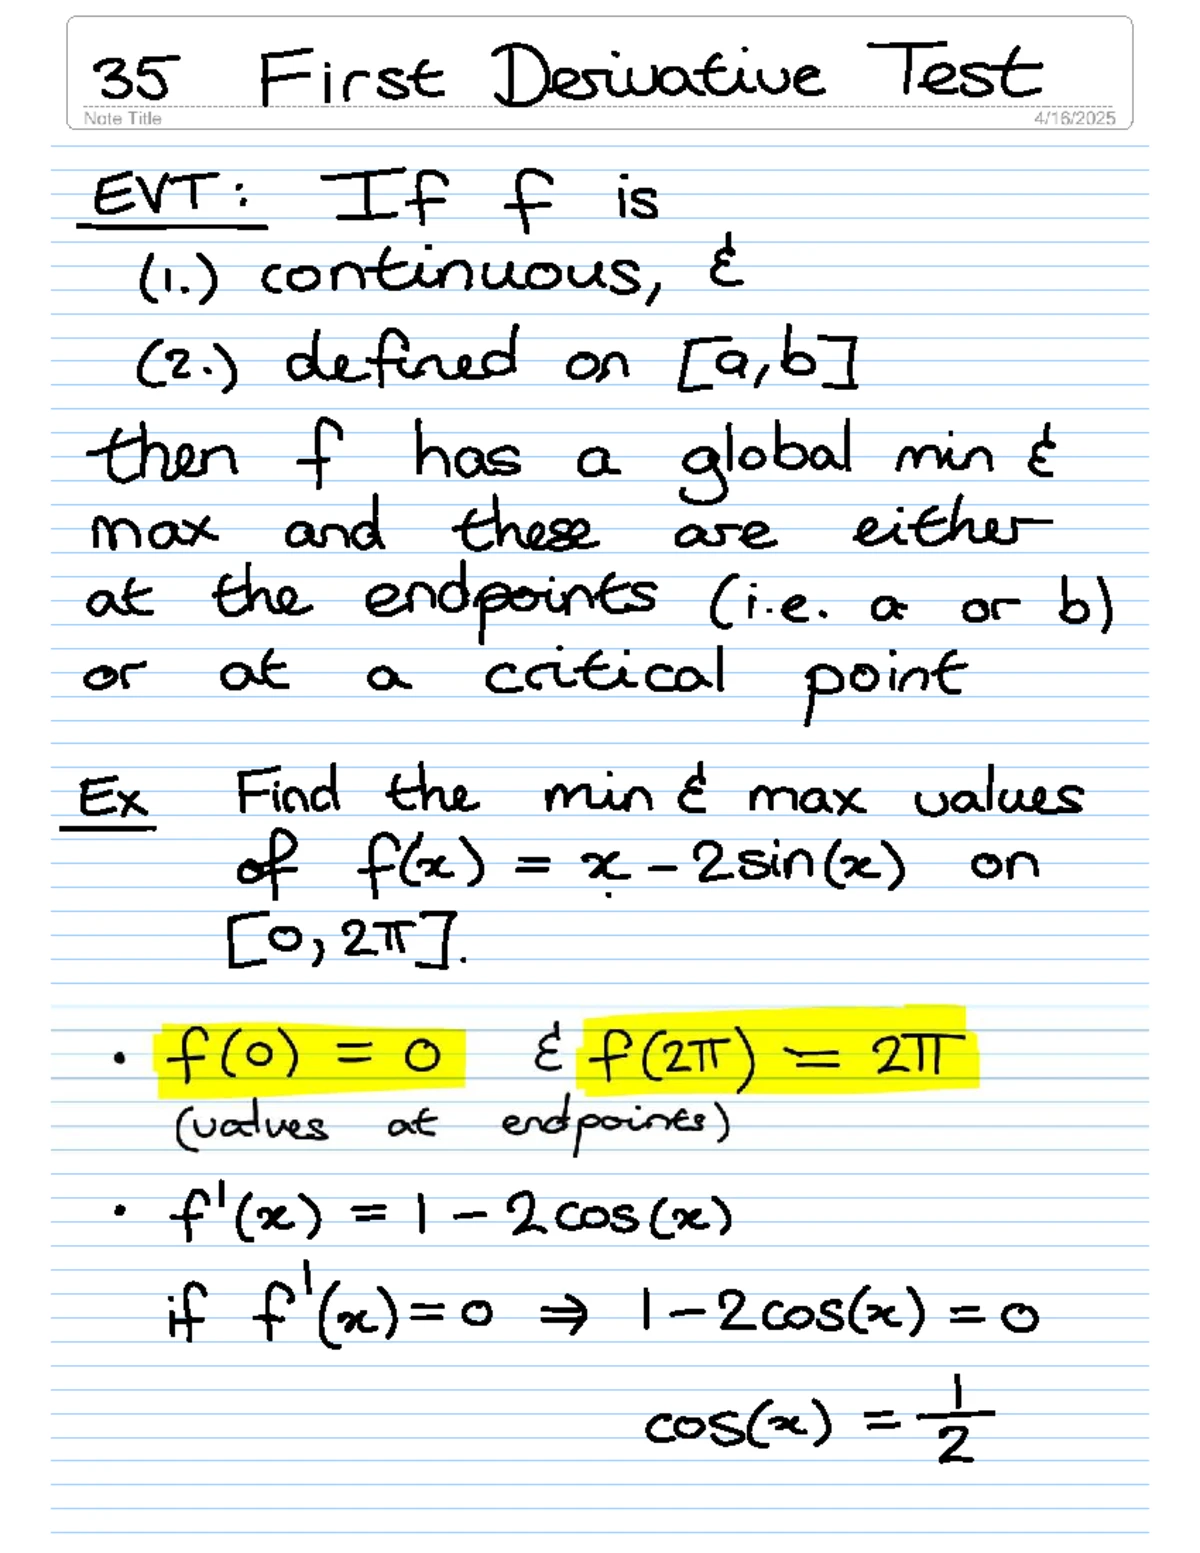 35 First Derivative Test
Note Title
4/16/2025
EVT: If f is
(1.) continuous, &
(2.) defined on [a,b]
then f has a global min &
max and these are either
at the endpoints (i.e. a or b)
or at a critical point
Ex Find the min & max values
of f(x) = x - 2sin(x) on
[0, 2π].
• f(0) = 0 & f(2π) = 2π
(values at endpoints)
• f'(x) = 1 - 2cos(x)
if f'(x) = 0 ⇒ 1 - 2cos(x) = 0
cos(x) = 1/2